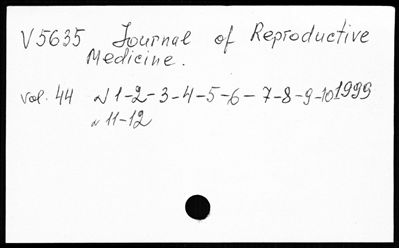 V5635 Journal of Reproductive
Medicine.
vol. 44 N 1-2-3-4-5-6-7-8-9-10 1999
N 11-12